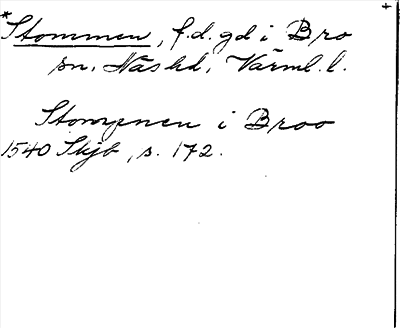 *Stommen, f.d. gd i Bro
sn, Näs hd, Värml. l.
Stompnen i Broo
1540 Skjb, s. 172.